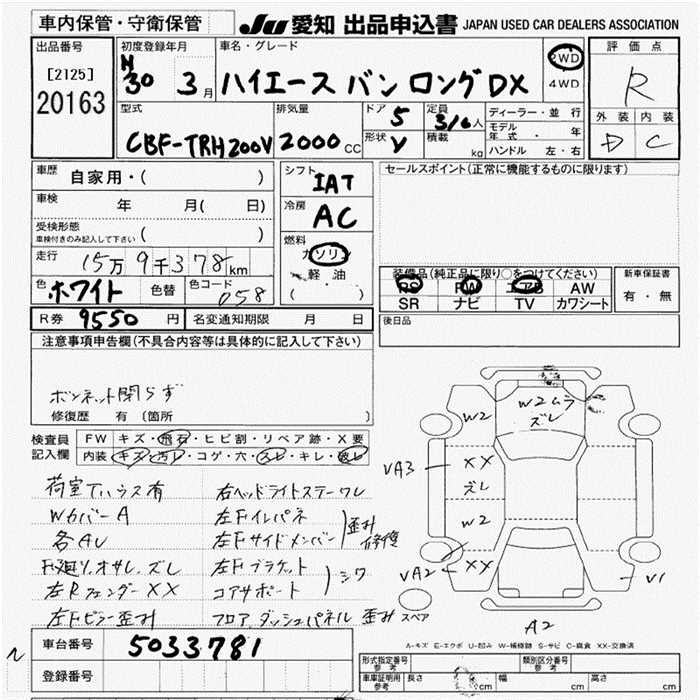 車内保管・守衛保管
JU 愛知 出品申込書 JAPAN USED CAR DEALERS ASSOCIATION
出品番号
[2125]
20163
初度登録年月
H30 3月
車名・グレード
ハイエース バン ロング DX
2WD
4WD
評価点
R
外装 内装
D C
型式
CBF-TRH200V
排気量
2000cc
ドア 5
形状 V
定員 3/6人
積載 kg
ディーラー・並行
モデル年式 ・ 年
ハンドル 左・右
車歴 自家用・( )
車検 年 月( 日)
受検形態
車検付きのみ記入して下さい ( )
走行 15万9千378km
色 ホワイト 色替 色コード 058
シフト IAT
冷房 AC
燃料
ガソリン
・軽油
( )
セールスポイント(正常に機能するものに限ります)
装備品(純正品に限り○をつけてください)
PS PW エアB AW
SR ナビ TV カワシート
新車保証書
有・無
R券 9550円 名変通知期限 月 日
後日品
注意事項申告欄(不具合内容等は具体的に記入して下さい)
ボンネット閉らず
修復歴 有 (箇所 )
検査員記入欄
FW キズ・飛石・ヒビ割・リペア跡・X要
内装 キズ・汚レ・コゲ・穴・スレ・キレ・破レ
荷室Tハウス有
Wカバー A
各AU
F廻り、オサレ、ズレ
左Rフェンダー XX
左Fピラー歪み
右ヘッドライトステーワレ
左Fインパネ
左Fサイドメンバー
歪み修復
左Fブラケット
コアサポート
シワ
フロア、ダッシュパネル 歪み
W2ムラ
ズレ
W2
VA3
XX
ズレ
W2
VA2
XX
V1
スペア
A2
A-キズ E-エクボ U-凹み W-補修跡 S-サビ C-腐食 XX-交換済
車台番号 5033781
登録番号
型式指定番号 参考
類別区分番号 参考
車庫証明用 参考 長さ cm 幅 cm 高さ cm